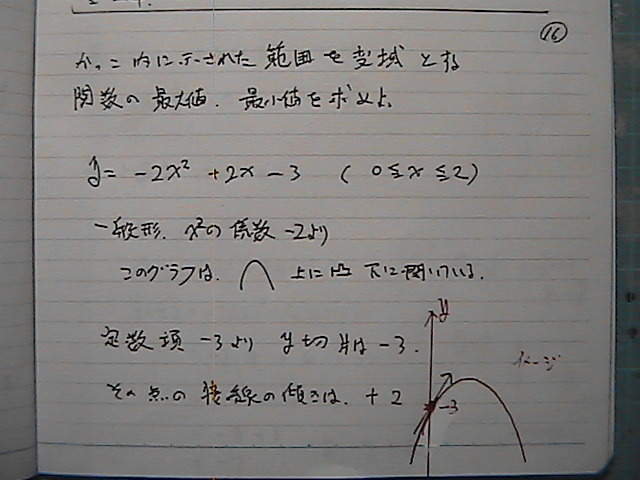 ⑯
かっこ内に示された範囲を変域とする
関数の最大値、最小値を求めよ。
y = -2x² + 2x - 3 ( 0 ≦ x ≦ 2 )
一般形. x²の係数 -2より
このグラフは、 上に凸 下に開いている.
定数項 -3より y切片は -3.
その点の接線の傾きは、+2
y
イメージ
-3